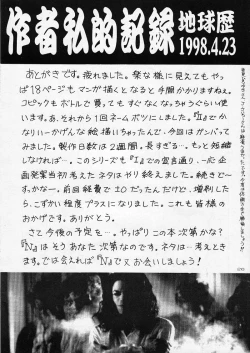 作者私的記録 地球歴
1998.4.23
あとがきです。疲れました。楽な様に見えてもやっ
ぱ18ページもマンガ描くとなると手間かかりますねぇ。
コピックもボトルで買ってもすぐなくなっちゃうぐらい使
います。あ、それから1回ネームボツにしました。『I』でか
なりいーかげんな絵描いちゃったんで、今回はガンバって
みました。製作日数は2週間。長すぎる…。もっと短縮
しなければ…。このシリーズも『I』での宣言通り、一応企
画発案当初考えたネタはやり終えました。続きど〜
すっかな〜。前回経費で±0だったんだけど、増刷した
ら、こずかい程度プラスになりました。これも皆様の
おかげです。ありがとう。
さて今後の予定を…。やっぱりこの本次第かな?
『N』はそうあなた次第なのです。ネタは…考えとき
ます。では会えれば『N』で又お会いしましょう!